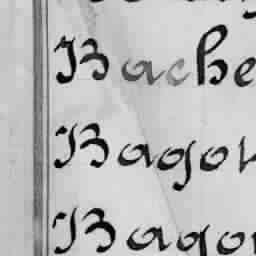 Bache
Bagot
Bagot